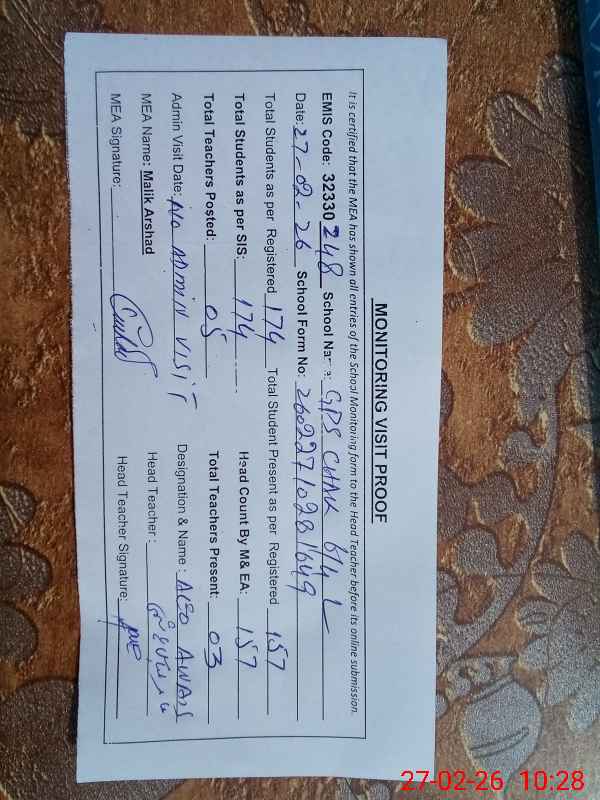 MONITORING VISIT PROOF
It is certified that the MEA has shown all entries of the School Monitoring form to the Head Teacher before its online submission.
EMIS Code: 32330248 School Name: GPS CHAK 6/4 L
Date: 27-02-26 School Form No: 26022710281649
Total Students as per Registered 174 Total Student Present as per Registered 157
Total Students as per SIS: 174 Head Count By M& EA: 157
Total Teachers Posted: 05 Total Teachers Present: 03
Admin Visit Date: No ADMIN VISIT Designation & Name: AEO AWAIS
MEA Name: Malik Arshad Head Teacher:
MEA Signature: Head Teacher Signature:
27-02-26 10:28